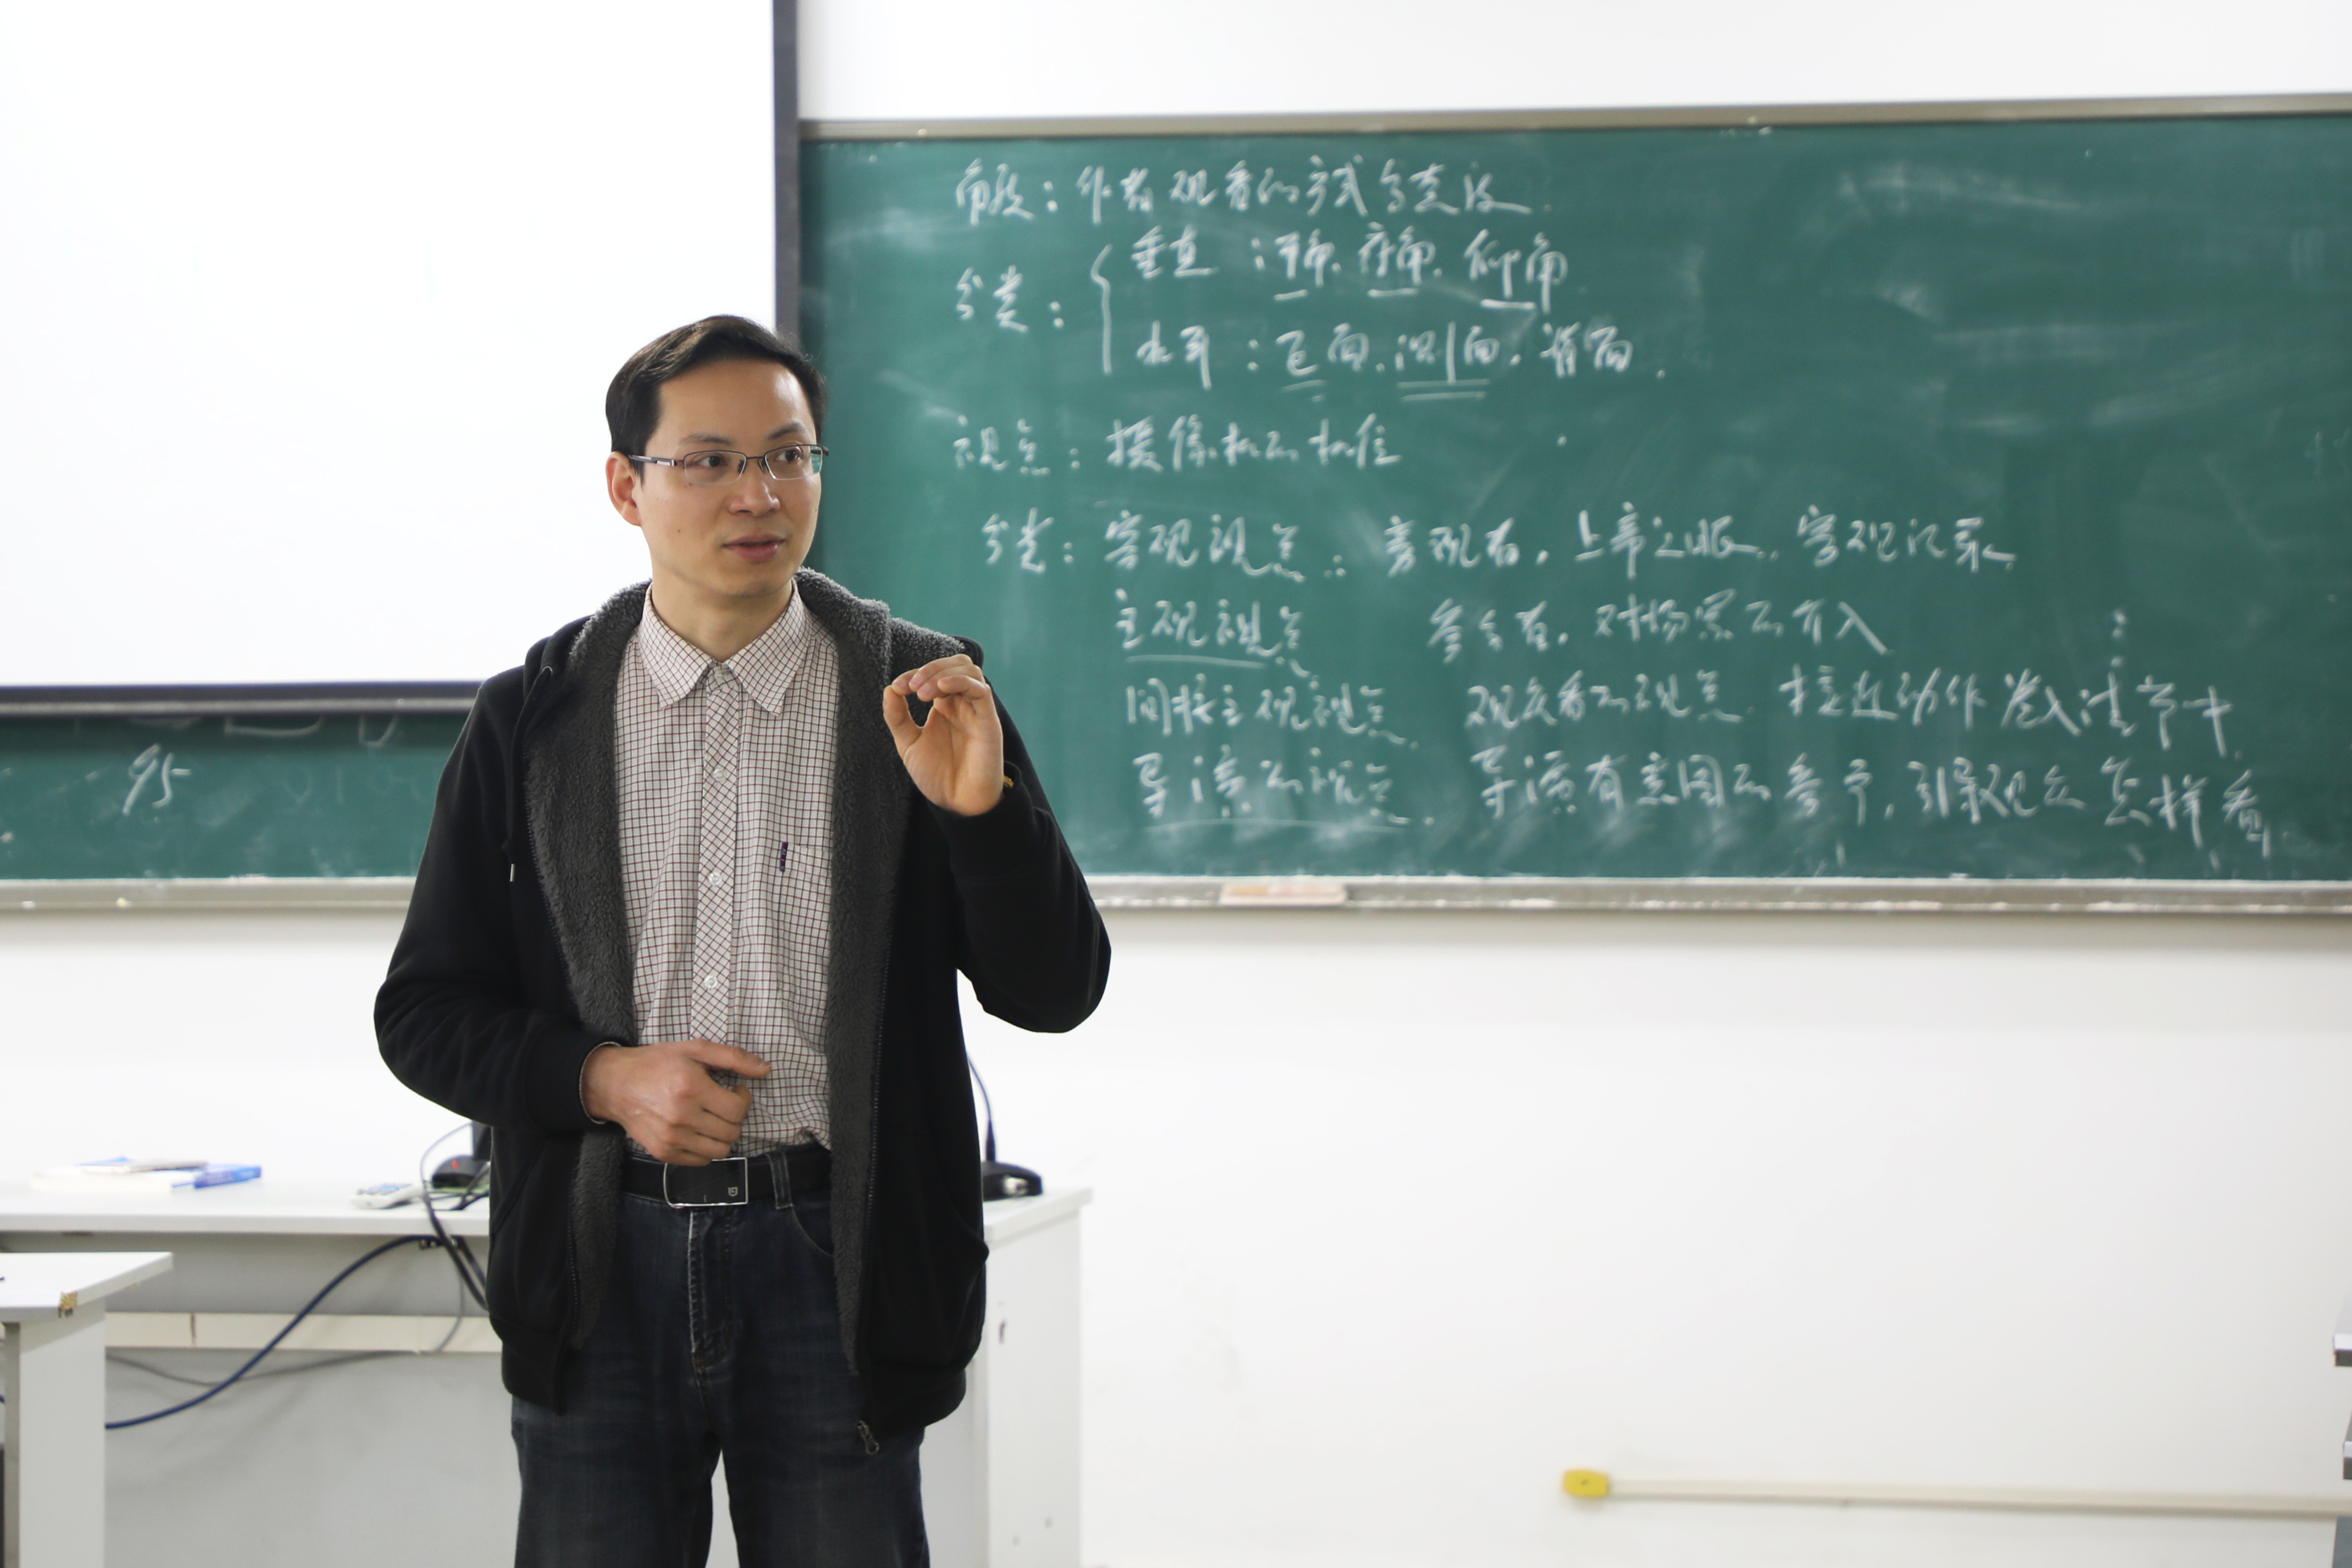 角度：作者观看的方式与意识
分类：
垂直：平角、俯角、仰角
水平：正面、侧面、背面.
视点：摄像机的机位
分类：客观视点：旁观者，上帝之眼、客观记录
主观视点 参与者，对场景的介入
间接主观视点. 观众看的视点 接近动作 卷入情节中.
导演的视点. 导演有意图的参与，引导观众怎样看
95